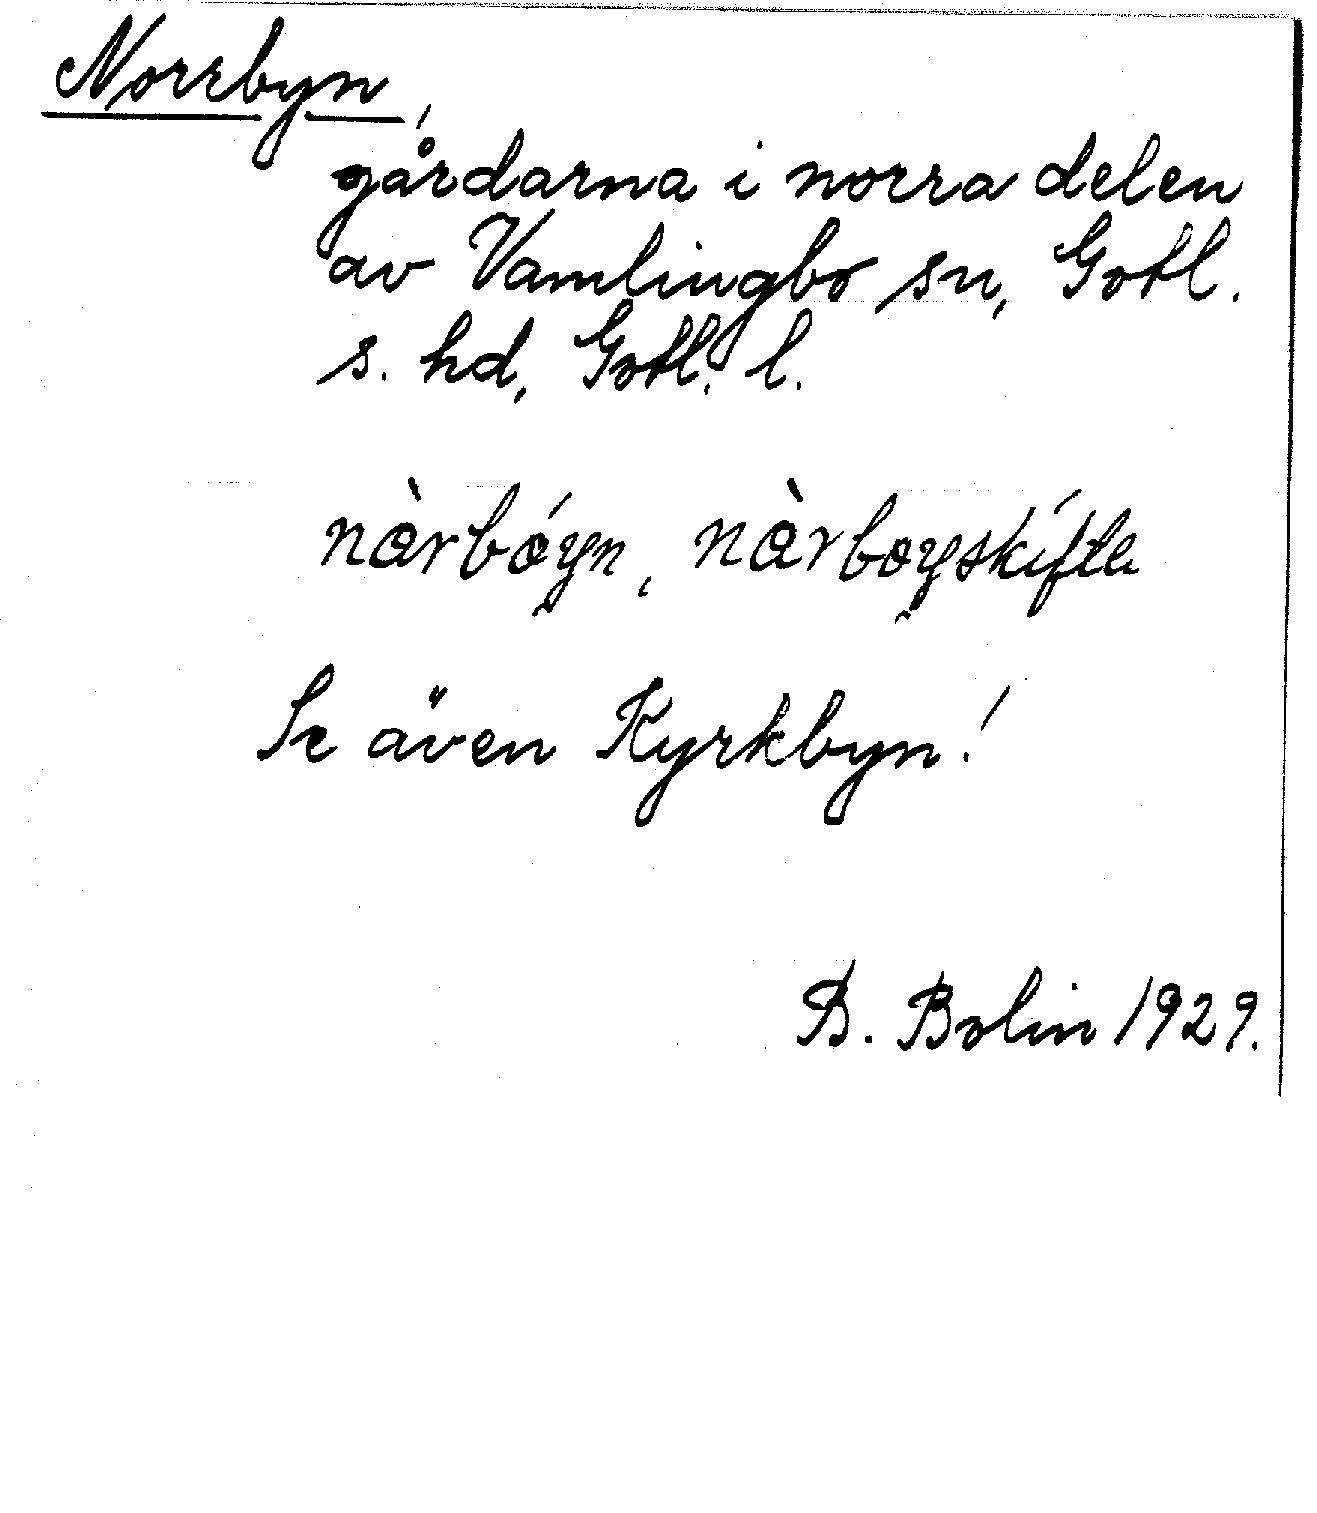 Norrbyn,
gårdarna i norra delen
av Vamlingbo sn, Gotl.
s. hd, Gotl. l.
nàrbóyn, nàrboyskífte
Se även Kyrkbyn!
B. Bolin 1929.